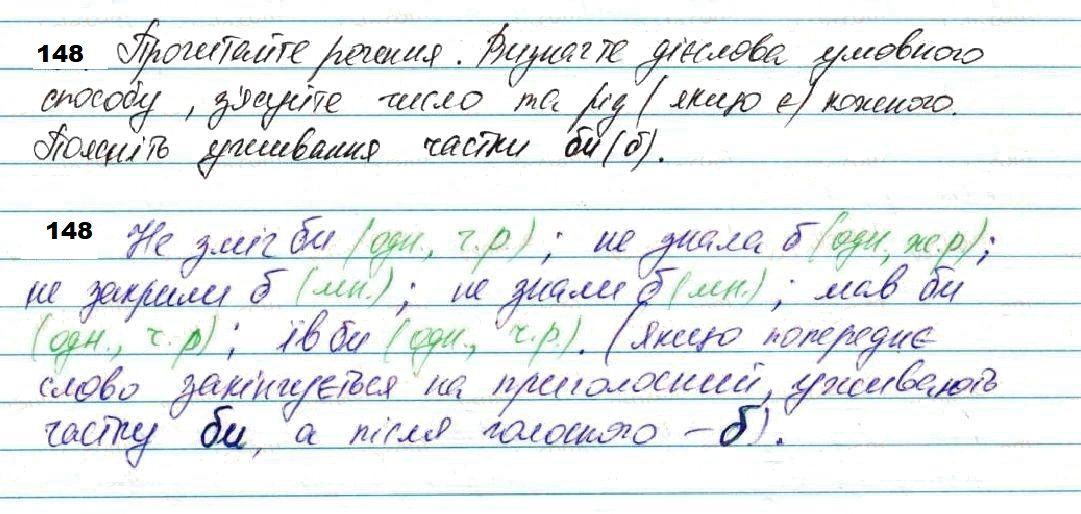 148 Прочитайте речення. Визначте дієслова умовного
способу, з'ясуйте число та рід (якщо є) кожного.
Поясніть уживання частки би (б).
148 Не зміг би (одн., ч.р.); не знала б (одн., ж.р);
не закрили б (мн.); не знали б (мн.); мав би
(одн., ч.р); їв би (одн., ч.р). (якщо попереднє
слово закінчується на приголосний, уживають
частку би, а після голосного – б).